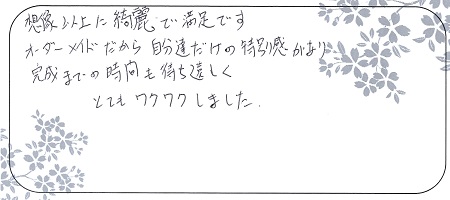 想像以上に綺麗で満足です
オーダーメイドだから自分達だけの特別感があり
完成までの時間も待ち遠しく
とてもワクワクしました.